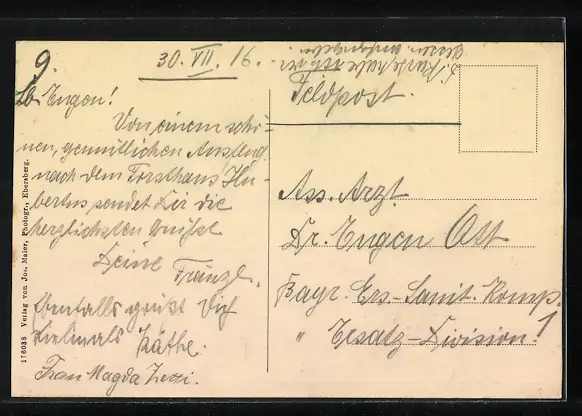 9.
30. VII. 16.
Lb. Eugen!
Von einem schö-
nen, gemütlichen Ausflug
nach dem Forsthaus Hu-
bertus sendet Dir die
herzlichsten Grüße
Deine Fränzl.
Ebenfalls grüßt Dich
vielmals Käthe.
Frau Magda
176038 Verlag von Jos. Maier, Photogr., Ebersberg.
D. Karte habe ich
Feldpost.
Ass. Arzt
Dr. Eugen Ott
Bayr. Ers.-Sanit. Komp. 1
" Ersatz-Division.